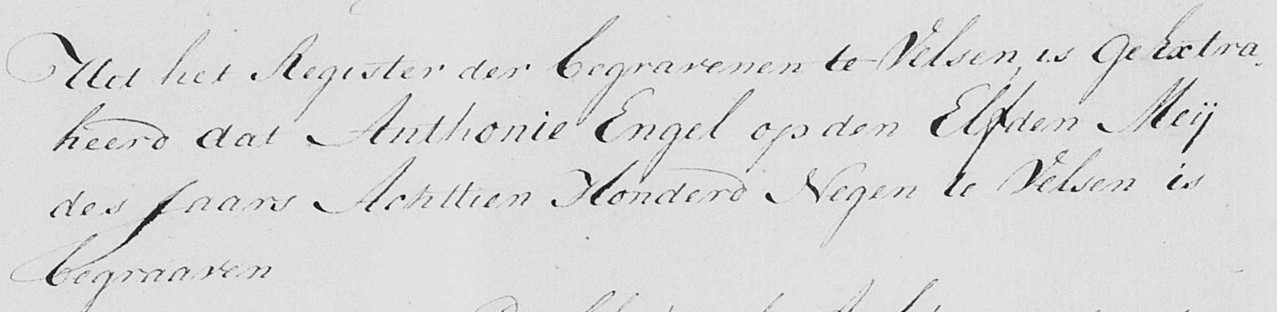 Uit het Register der begravenen te Velsen, is GeExtra
heerd dat Anthonie Engel op den Elfden Meij
des Jaars Achttien Honderd Negen te Velsen is
begraaven